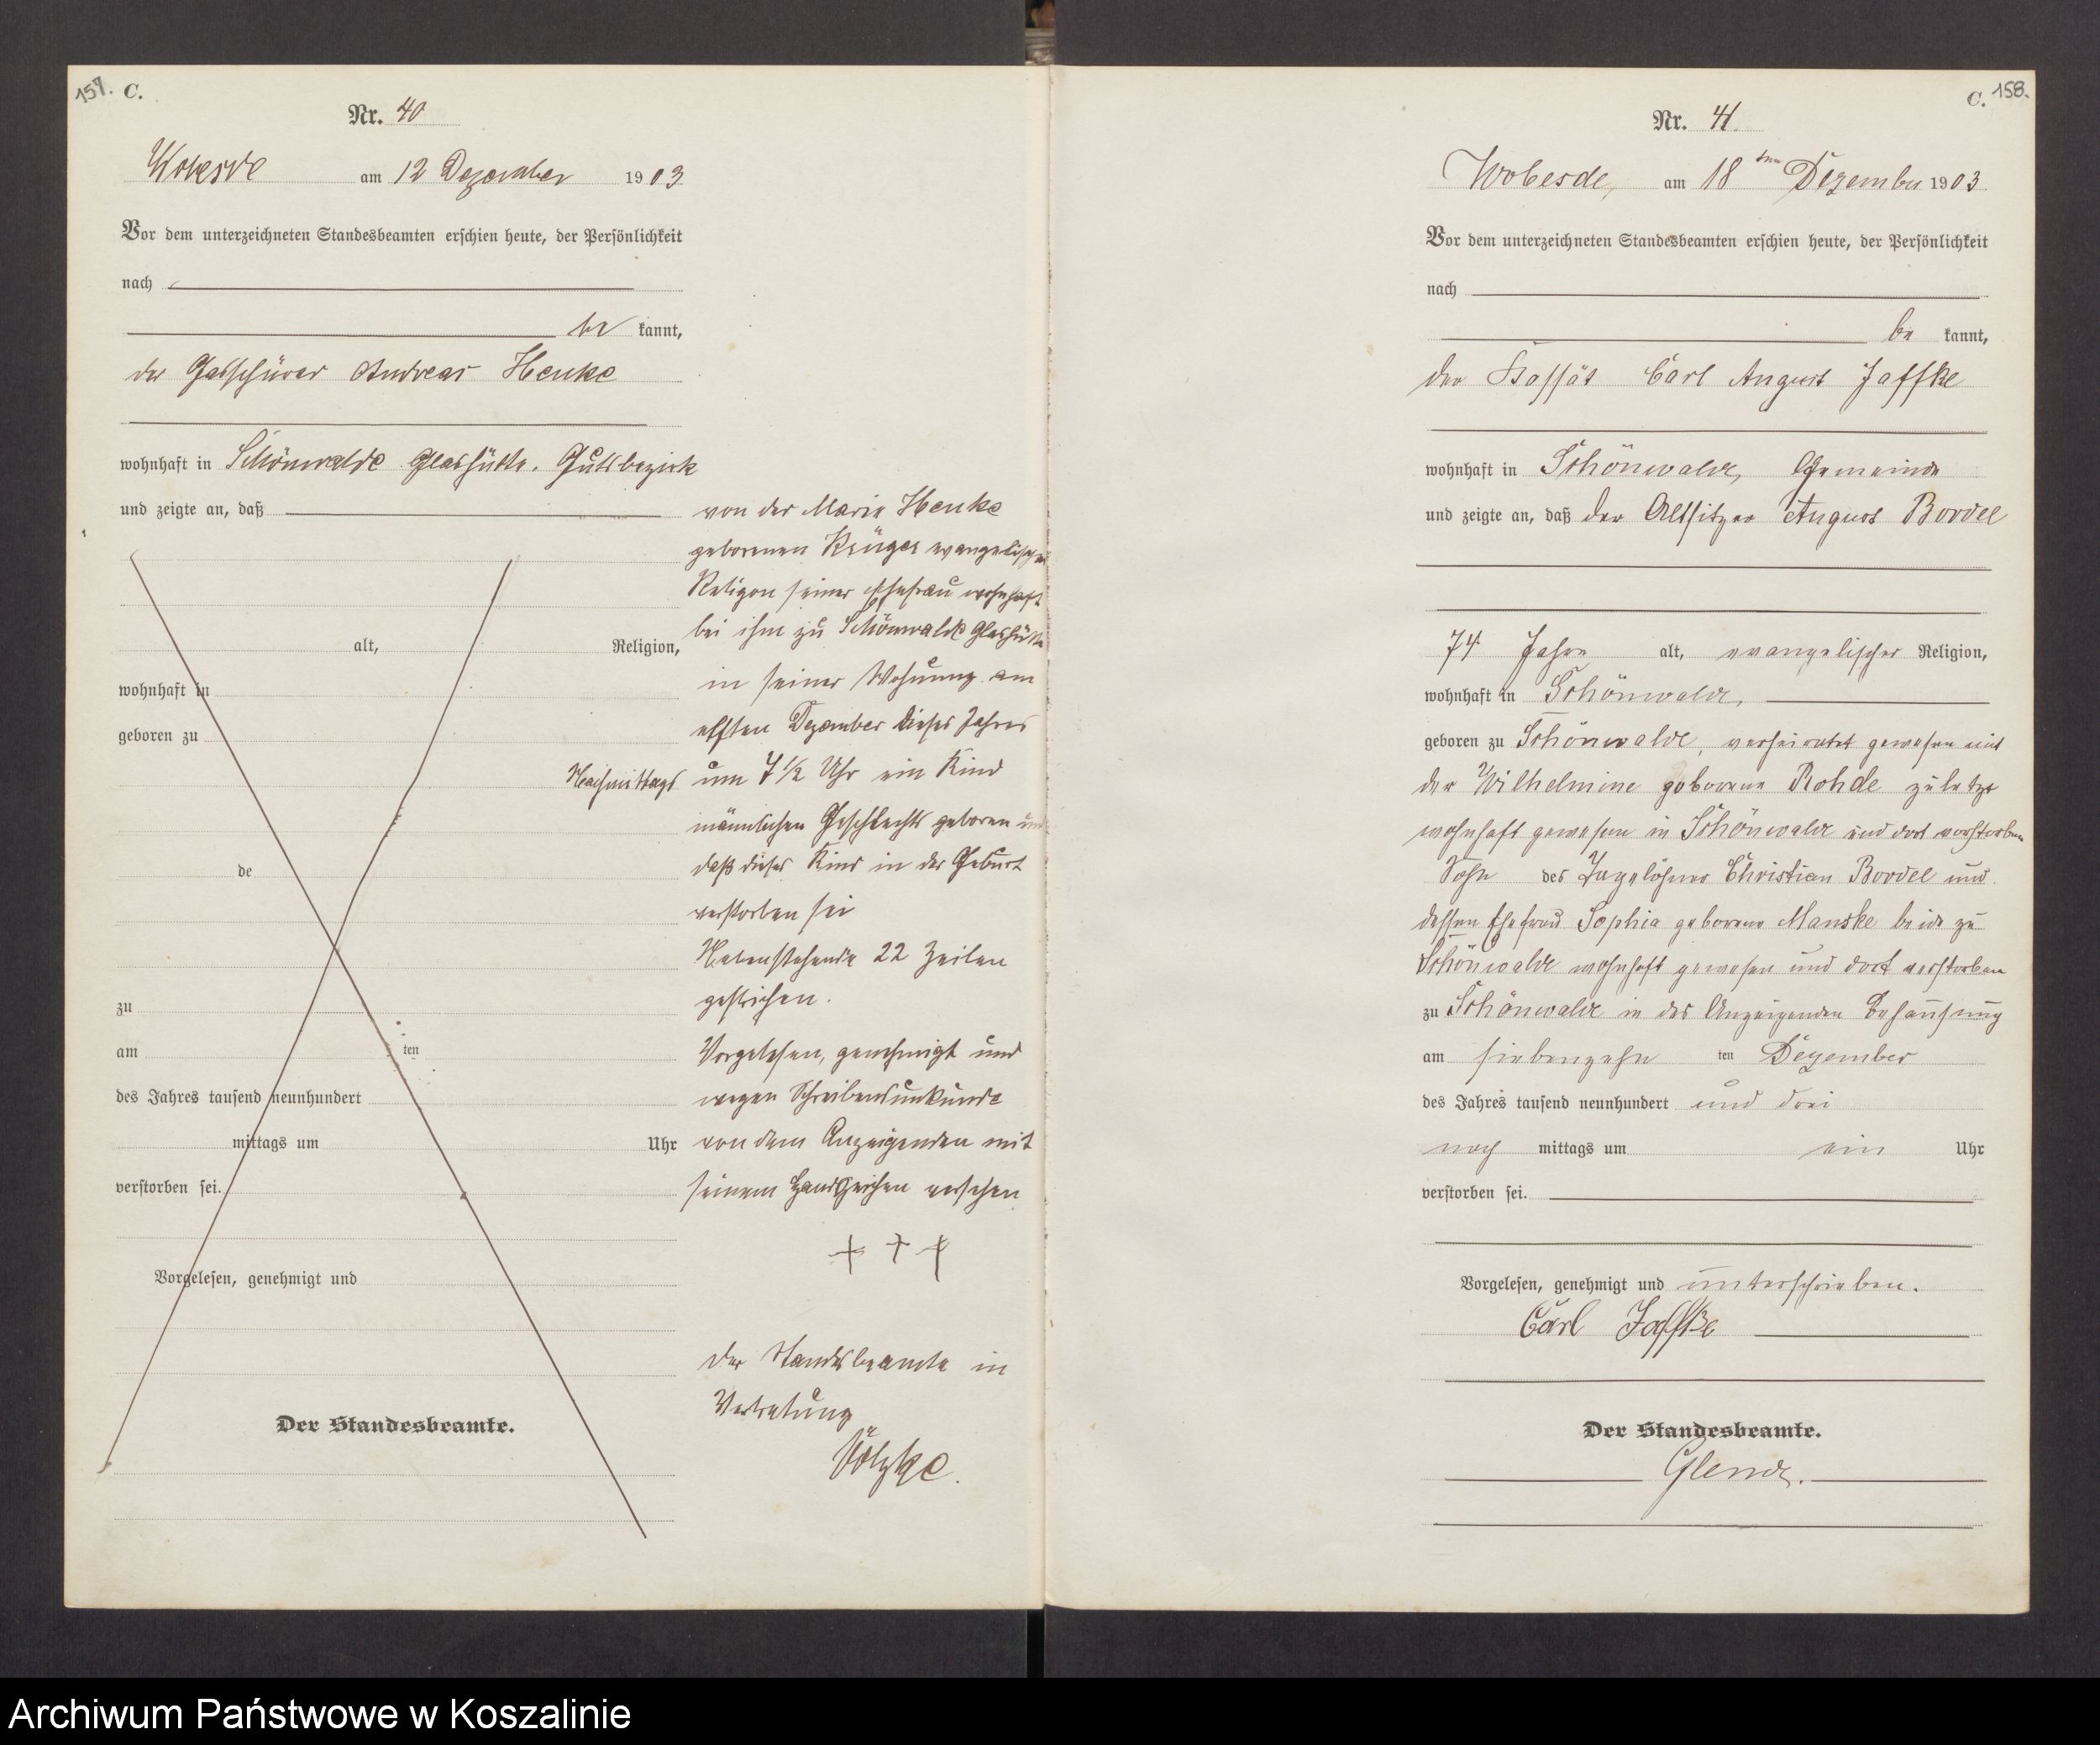 157. C.
Nr. 40
Wobesde am 12 Dezember 1903
Vor dem unterzeichneten Standesbeamten erschien heute, der Persönlichkeit
nach
be kannt,
der Gasschürer Andreas Henke
wohnhaft in Schönwalde Glashütte. Gutsbezirk
und zeigte an, daß
von der Marie Henke
geborenen Krüger evangelischer
Religon seiner Ehefrau wohnhaft
alt, Religion,
bei ihm zu Schönwalde Glashütte
wohnhaft in
in seiner Wohnung am
geboren zu
elften Dezember dieses Jahres
Nachmittags um 7 1/2 Uhr ein Kind
männlichen Geschlechts geboren und
de
daß dieses Kind in der Geburt
verstorben sei
Nebenstehende 22 Zeilen
zu
gestrichen.
am ten
Vorgelesen, genehmigt und
des Jahres tausend neunhundert
wegen Schreibensunkunde
mittags um Uhr
von dem Anzeigenden mit
verstorben sei.
seinem Handzeichen versehen
† † †
Vorgelesen, genehmigt und
Der Standesbeamte in
Vertretung
Der Standesbeamte.
C. 158.
Nr. 41.
Wobesde, am 18 ten Dezember 1903
Vor dem unterzeichneten Standesbeamten erschien heute, der Persönlichkeit
nach
be kannt,
der Kossät Carl August Jaffke
wohnhaft in Schönwalde, Gemeinde
und zeigte an, daß der Altsitzer August Bordel
74 Jahre alt, evangelischer Religion,
wohnhaft in Schönwalde,
geboren zu Schönwalde, verheiratet gewesen mit
der Wilhelmine geborene Rohde zuletzt
wohnhaft gewesen in Schönwalde und dort verstorben
Sohn des Tagelöhner Christian Bordel und
dessen Ehefrau Sophia geborene Manske beide zu
Schönwalde wohnhaft gewesen und dort verstorben
zu Schönwalde in des Anzeigenden Behausung
am siebenzehn ten Dezember
des Jahres tausend neunhundert und drei
nach mittags um ein Uhr
verstorben sei.
Vorgelesen, genehmigt und unterschrieben.
Carl Jaffke
Der Standesbeamte.
Archiwum Państwowe w Koszalinie